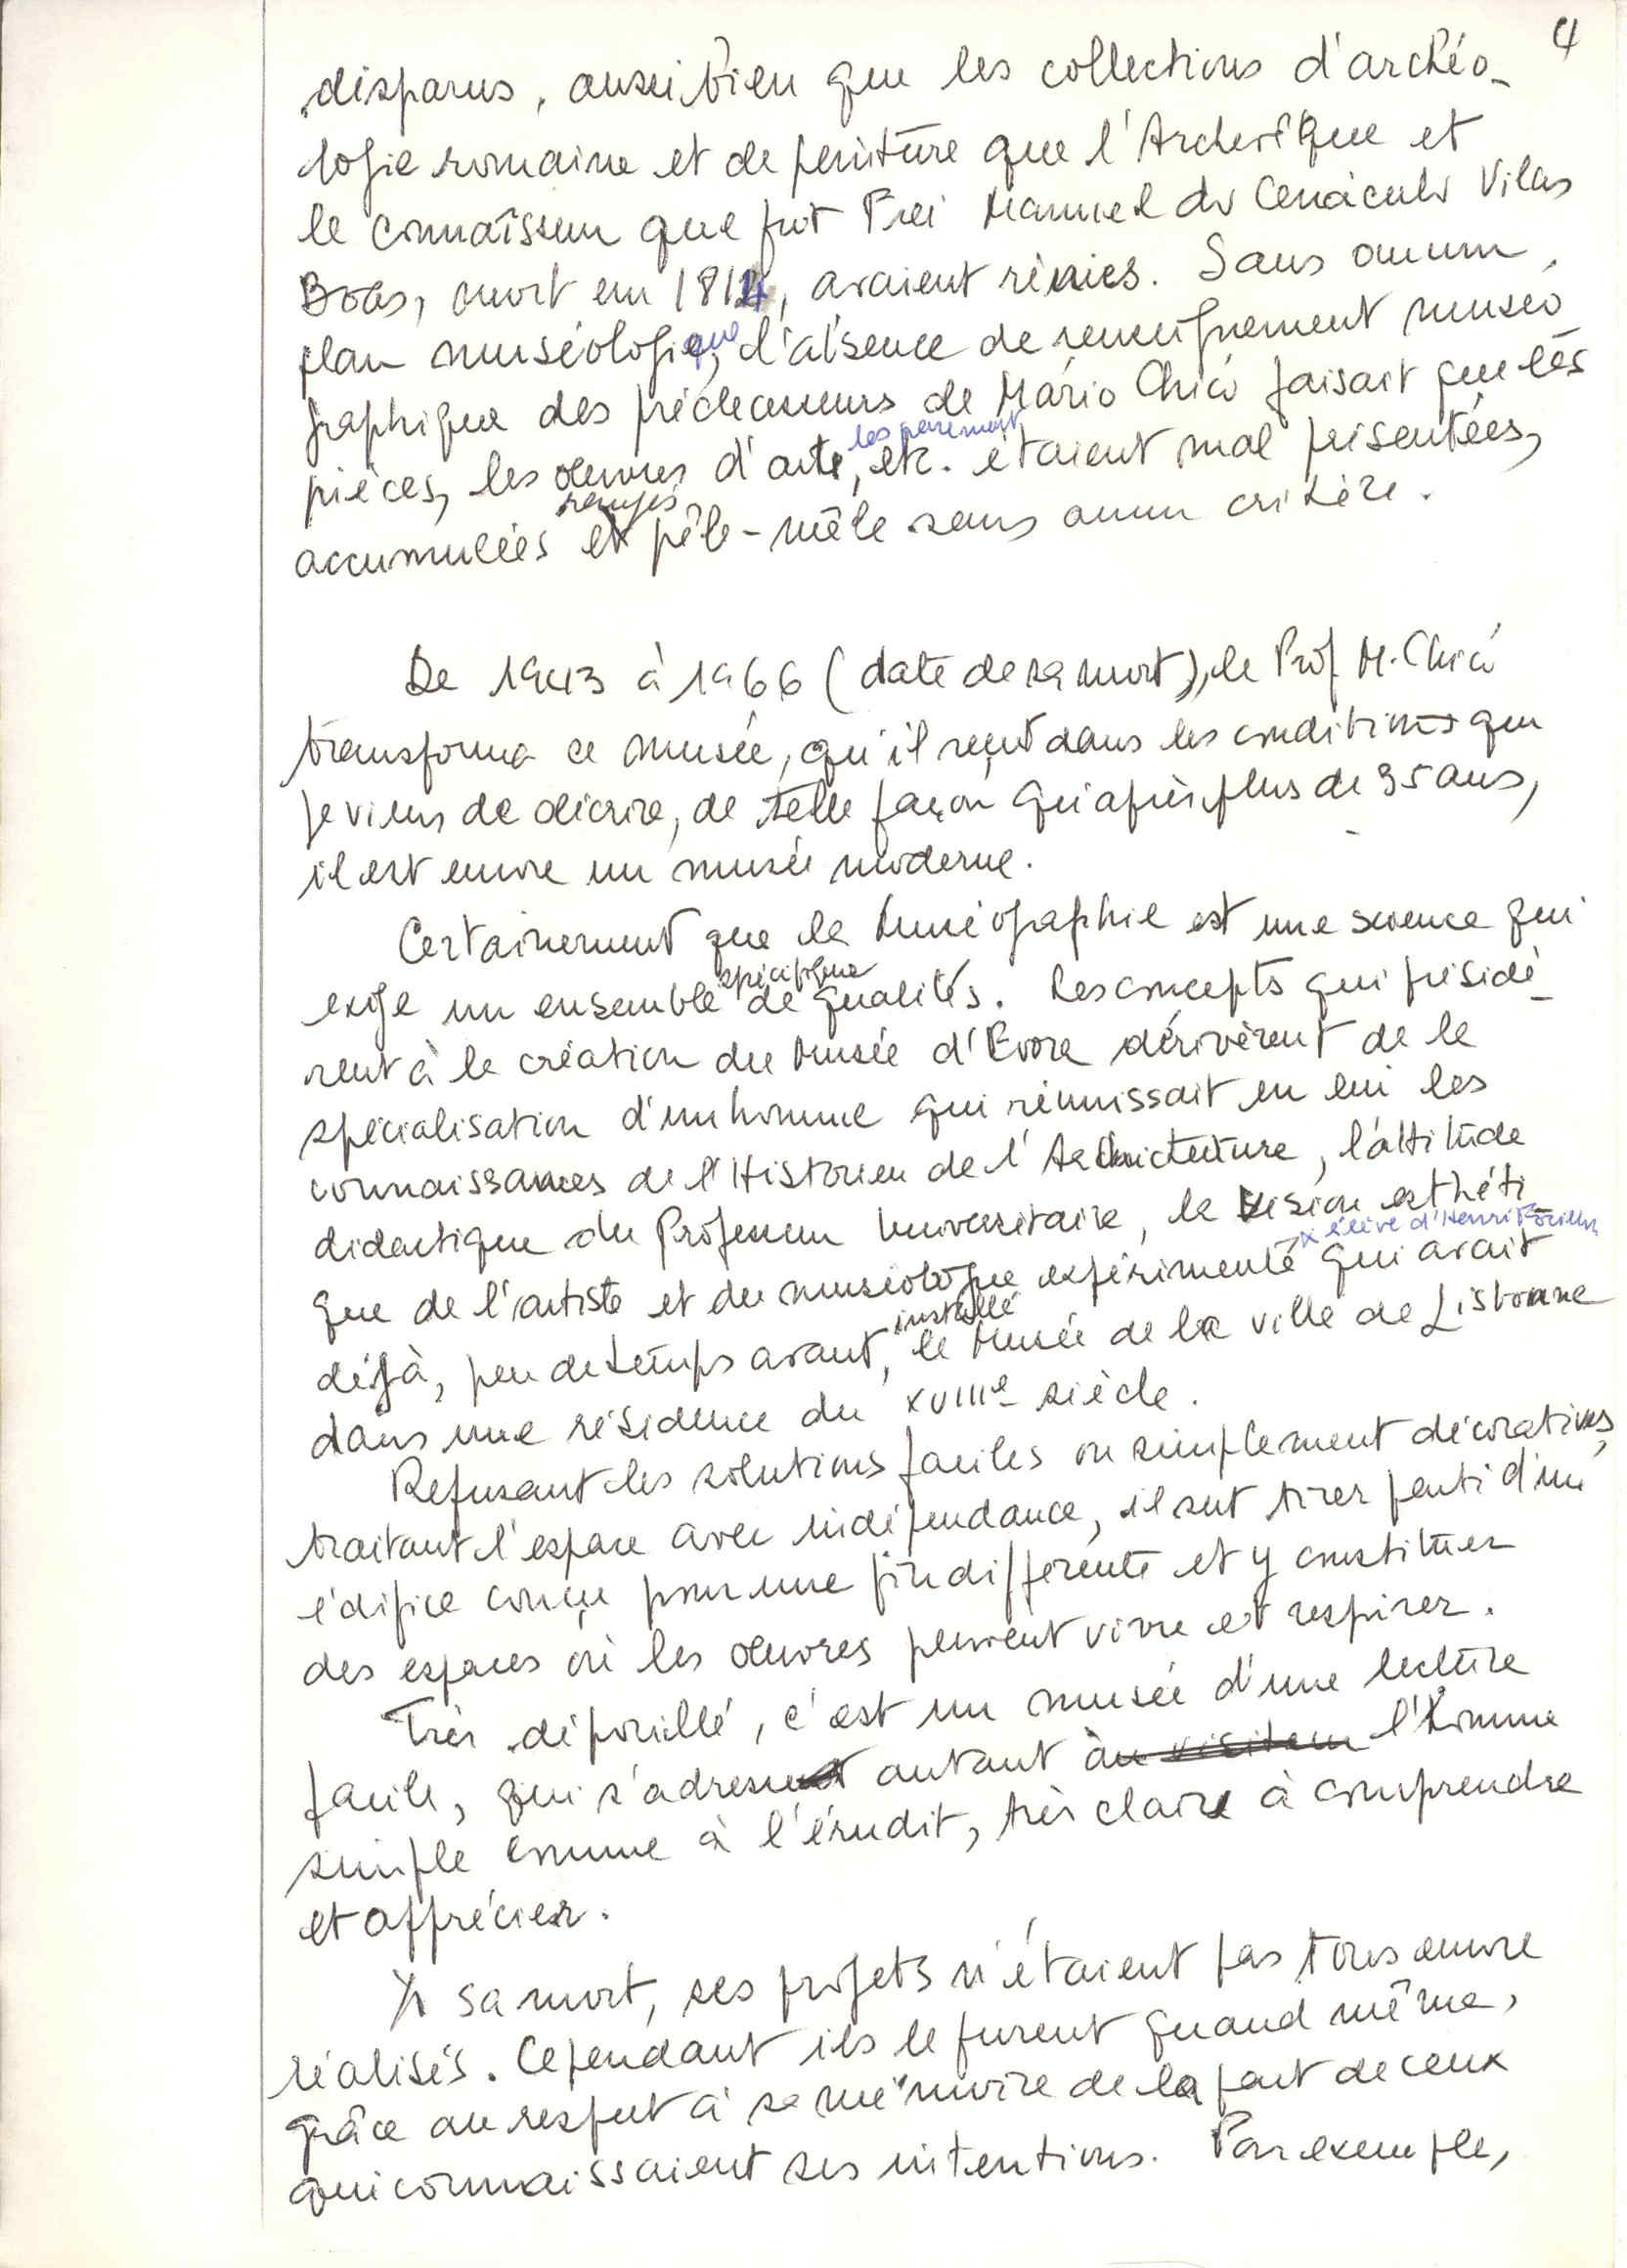 4
disparus, aussi bien que les collections d'archéo-
logie romaine et de peinture que l'Archevêque et
le connaîsseur que fut Frei Manuel do Cenáculo Vilas
Boas, mort en 1814, avaient réunies. Sans aucun
plan muséologique, l'absence de renseignement muséo
graphique des prédecesseurs de Mário Chicó faisait que les
pièces, les oeuvres d'arte, les parements, etc. étaient mal présentées,
accumulées rangés et pêle-mêle sans aucun critère.
De 1943 à 1966 (date de sa mort), le Prof M. Chicó
transforma ce musée, qu'il reçut dans les conditions que
je viens de décrire, de telle façon qu'après plus de 35 ans,
il est encore un musée moderne.
Certainement que la Muséographie est une science qui
exige un ensemble spécifique de qualités. Les concepts qui présidè-
rent à la création du Musée d'Evora dérivèrent de la
spécialisation d'un homme qui réunissait en lui les
connaissances de l'Historien de l'Architecture, l'attitude
didactique du Professeur Universitaire, la vision esthéti-
que de l'artiste et du muséologue expérimenté x élève d'Henri Focillon qui avait
déjà, peu de temps avant, installé le Musée de la ville de Lisbonne
dans une résidence du XVIIIe siècle.
Refusant les solutions faciles ou simplement décoratives,
traitant l'espace avec indépendance, il sut tirer parti d'un
édifice conçu pour une fin differente et y constituer
des espaces où les oeuvres peuvent vivre et respirer.
Très dépouillé, c'est un musée d'une lecture
facile, qui s'adresse autant à l'homme
simple comme à l'érudit, très claire à comprendre
et apprécier.
A sa mort, ses projets n'étaient pas tous encore
réalisés. Cependant ils le furent quand même,
grâce au respect à sa mémoire de la part de ceux
qui connaissaient ses intentions. Par exemple,